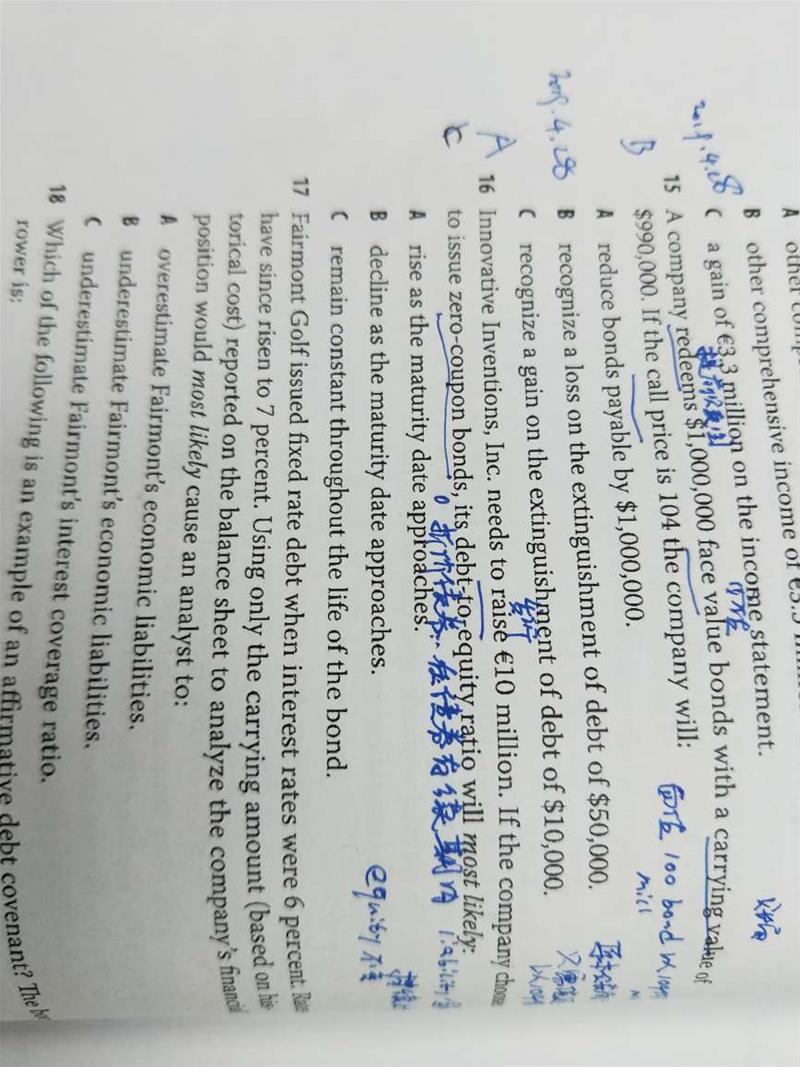 A other
B other comprehensive income of €3.3
C a gain of €3.3 million on the income statement.
15 A company redeems $1,000,000 face value bonds with a carrying value of
$990,000. If the call price is 104 the company will:
A reduce bonds payable by $1,000,000.
B recognize a loss on the extinguishment of debt of $50,000.
C recognize a gain on the extinguishment of debt of $10,000.
16 Innovative Inventions, Inc. needs to raise €10 million. If the company choose
to issue zero-coupon bonds, its debt-to-equity ratio will most likely:
A rise as the maturity date approaches.
B decline as the maturity date approaches.
C remain constant throughout the life of the bond.
17 Fairmont Golf issued fixed rate debt when interest rates were 6 percent. Rates
have since risen to 7 percent. Using only the carrying amount (based on his
torical cost) reported on the balance sheet to analyze the company's financi
position would most likely cause an analyst to:
A overestimate Fairmont's economic liabilities.
B underestimate Fairmont's economic liabilities.
C underestimate Fairmont's interest coverage ratio.
18 Which of the following is an example of an affirmative debt covenant? The b
rower is:
B
A
C
面值
发行
面值 100 bond
mill
equity 不变